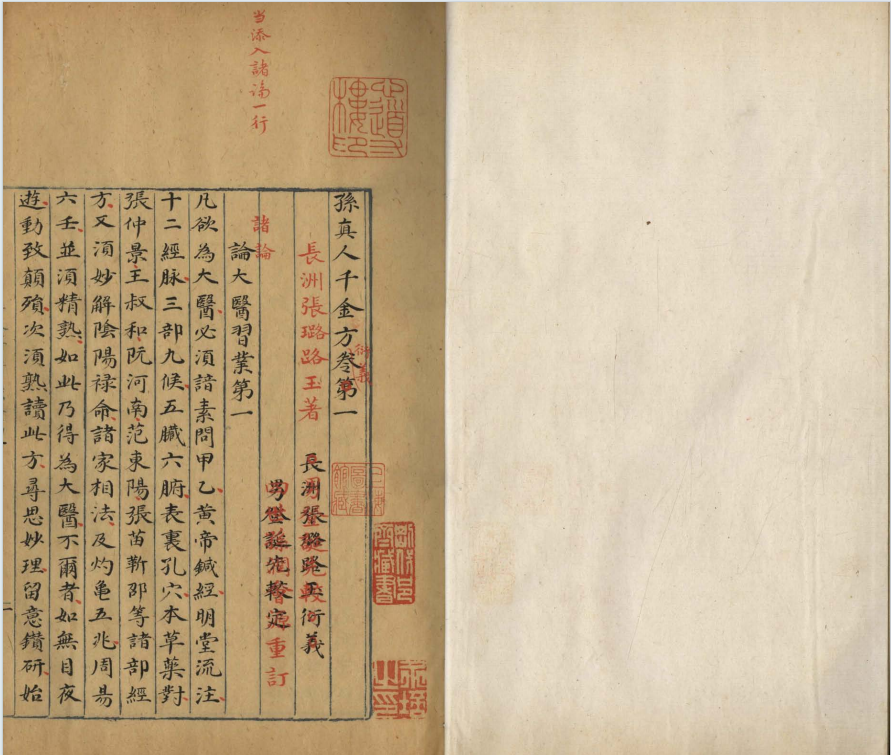 当添入諸論一行
孫真人千金方卷第一
衍義
長洲張璐路玉著
長洲張璐路玉衍義
男登誕先較定
重訂
諸論
論大醫習業第一
凡欲為大醫必須諳素問甲乙黄帝鍼經明堂流注
十二經脉三部九候五臓六腑表裏孔穴本草藥對
張仲景王叔和阮河南范東陽張苗靳邵等諸部經
方又須妙解陰陽禄命諸家相法及灼亀五兆周易
六壬並須精熟如此乃得為大醫不爾者如無目夜
遊動致顛殞次須熟讀此方尋思妙理留意鑽研始